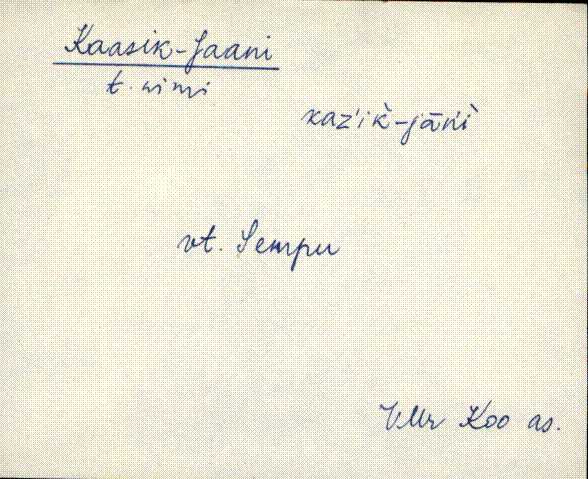 Kaasik-Jaani
t. nimi
kaz'ik̀-jāǹ'ì
vt. Sempu
VMr Koo as.